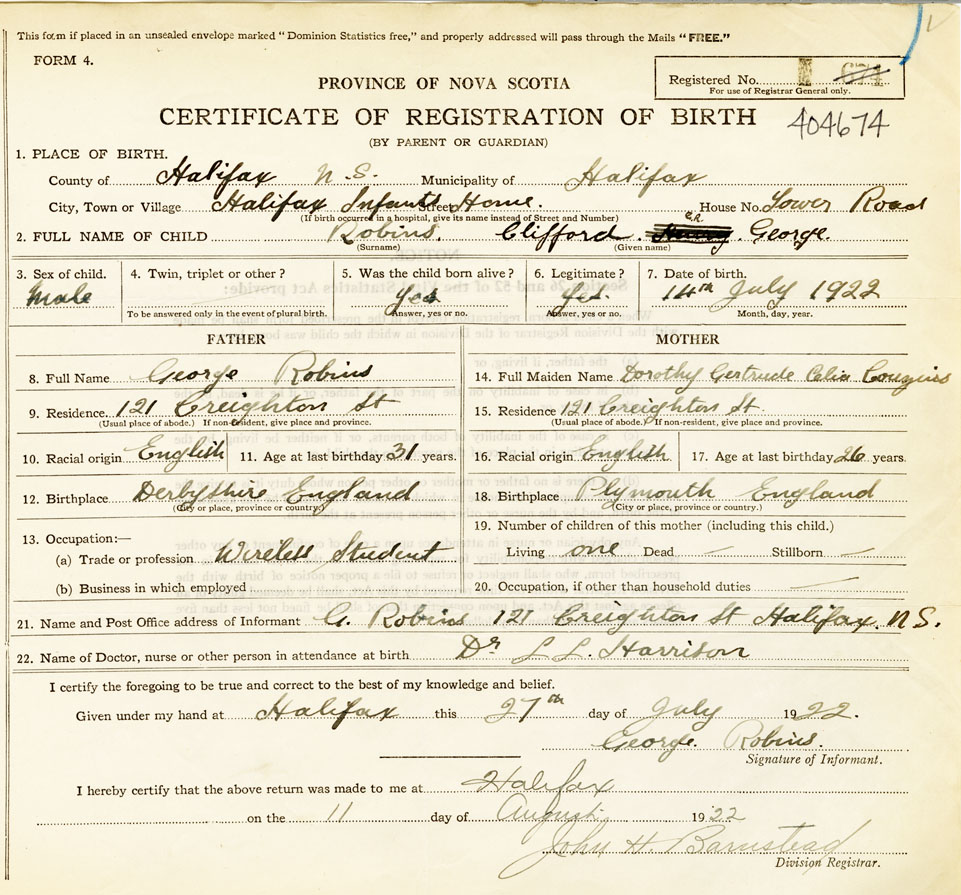 This form if placed in an unsealed envelope marked "Dominion Statistics free," and properly addressed will pass through the Mails "FREE."
FORM 4.
PROVINCE OF NOVA SCOTIA
Registered No. 674
For use of Registrar General only.
CERTIFICATE OF REGISTRATION OF BIRTH 404674
(BY PARENT OR GUARDIAN)
1. PLACE OF BIRTH.
County of Halifax N.S. Municipality of Halifax
City, Town or Village Halifax Infants Street Home. House No. Tower Road
(If birth occurred in a hospital, give its name instead of Street and Number)
2. FULL NAME OF CHILD Robins. Clifford. George.
(Surname) (Given name)
3. Sex of child. 4. Twin, triplet or other? 5. Was the child born alive? 6. Legitimate? 7. Date of birth.
Male Yes Yes. 14th July 1922
To be answered only in the event of plural birth. Answer, yes or no. Answer, yes or no. Month, day, year.
FATHER MOTHER
8. Full Name George Robins 14. Full Maiden Name Dorothy Gertrude Celia Couzins
9. Residence. 121 Creighton St 15. Residence 121 Creighton St.
(Usual place of abode.) If non-resident, give place and province. (Usual place of abode.) If non-resident, give place and province.
10. Racial origin English 11. Age at last birthday 31 years. 16. Racial origin English 17. Age at last birthday 26 years.
12. Birthplace Derbyshire England 18. Birthplace Plymouth England
(City or place, province or country.) (City or place, province or country.)
13. Occupation:— 19. Number of children of this mother (including this child.)
(a) Trade or profession Wireless Student Living one Dead — Stillborn —
(b) Business in which employed 20. Occupation, if other than household duties —
21. Name and Post Office address of Informant G. Robins 121 Creighton St Halifax. N.S.
22. Name of Doctor, nurse or other person in attendance at birth Dr L L. Harrison
I certify the foregoing to be true and correct to the best of my knowledge and belief.
Given under my hand at Halifax this 27th day of July 1922.
George. Robins.
Signature of Informant.
I hereby certify that the above return was made to me at Halifax
on the 11 day of August 1922
John H. Barnstead
Division Registrar.